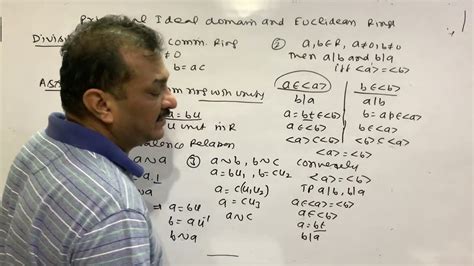 Pri al Ideal domain and Euclidean Ring
Divis Comm. Ring
≠0
b = ac
Ass ring with unity
a = bu
u unit in R
valence Relation
a~a
~a
⇒ a = bu
b = au⁻¹
b~a
③ a~b, b~c
a = bu₁, b = cu₂
a = c(u₁u₂)
a = cu₃
a~c
② a,b∈R, a≠0, b≠0
Then a|b and b|a
iff <a> = <b>
a∈<a> b∈<b>
b|a a|b
a = bt∈<b> b = ap∈<a>
a∈<b> b∈<a>
<a>⊂<b> <b>⊂<a>
<a> = <b>
Conversely
<a> = <b>
TP a|b, b|a
a∈<a> = <b>
a∈<b>
a = bt
b|a